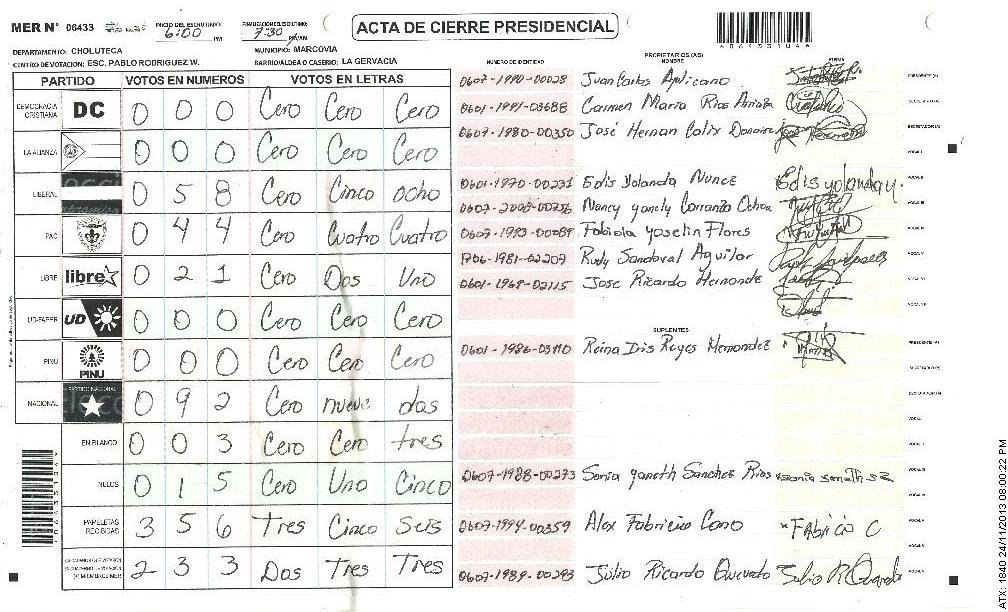 MER N° 06433 INICIO DEL ESCRUTINIO: 6:00 PM FINALIZACION ESCRUTINIO: 7:30 PM ACTA DE CIERRE PRESIDENCIAL
DEPARTAMENTO: CHOLUTECA MUNICIPIO: MARCOVIA
CENTRO DE VOTACION: ESC. PABLO RODRIGUEZ W. BARRIO/ALDEA O CASERIO: LA GERVACIA
PARTIDO VOTOS EN NUMEROS VOTOS EN LETRAS
DEMOCRACIA CRISTIANA DC 0 0 0 Cero Cero Cero
LA ALIANZA 0 0 0 Cero Cero Cero
LIBERAL 0 5 8 Cero Cinco ocho
PAC 0 4 4 Cero Cuatro Cuatro
LIBRE libre 0 2 1 Cero Dos Uno
UD-FAPER UD 0 0 0 Cero Cero Cero
PINU PINU 0 0 0 Cero Cero Cero
NACIONAL PARTIDO NACIONAL 0 9 2 Cero nueve dos
EN BLANCO 0 0 3 Cero Cero tres
NULOS 0 1 5 Cero Uno Cinco
PAPELETAS RECIBIDAS 3 5 6 Tres Cinco Seis
2 3 3 Dos Tres Tres
NUMERO DE IDENTIDAD PROPIETARIOS (AS) NOMBRE FIRMA
0607-1990-00028 Juan Carlos Aplicano PRESIDENTE (A)
Carmen Maria Rios SECRETARIO (A)
0607-1980-00350 José Hernan Calix ESCRUTADOR (A)
VOCAL I
0601-1970-00231 Edis Yolanda Nunez Edis yolanda VOCAL II
Nancy yanely Carranza Ochoa VOCAL III
0607-1983-00089 Fabiola yoselin Flores VOCAL IV
1706-1981-02209 Rudy Sandoval Aguilar VOCAL V
0601-1968-02115 Jose Ricardo VOCAL VI
VOCAL VII
SUPLENTES
0601-1986-03110 Reina Iris Reyes Hernandez PRESIDENTE (A)
SECRETARIO (A)
ESCRUTADOR (A)
VOCAL I
VOCAL II
0607-1988-00273 Sonia yaneth Sanchez Rios VOCAL III
VOCAL IV
0607-1994-00359 Alex Fabricio Cano FAbricio C VOCAL V
VOCAL VI
0607-1989-00293 Júlio Ricardo Quevedo Julio R Quevedo VOCAL VII
ATX: 1840 24/11/2013 08:00:22 PM